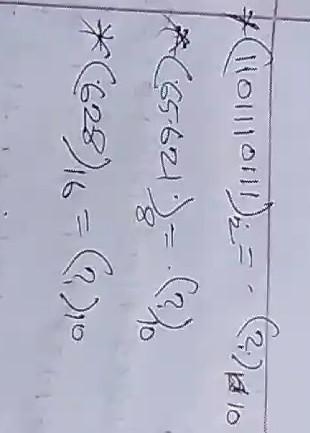 *(1101110111)₂ = . (?)10
*(65621)₈ = . (?)10
*(628)16 = (?)10